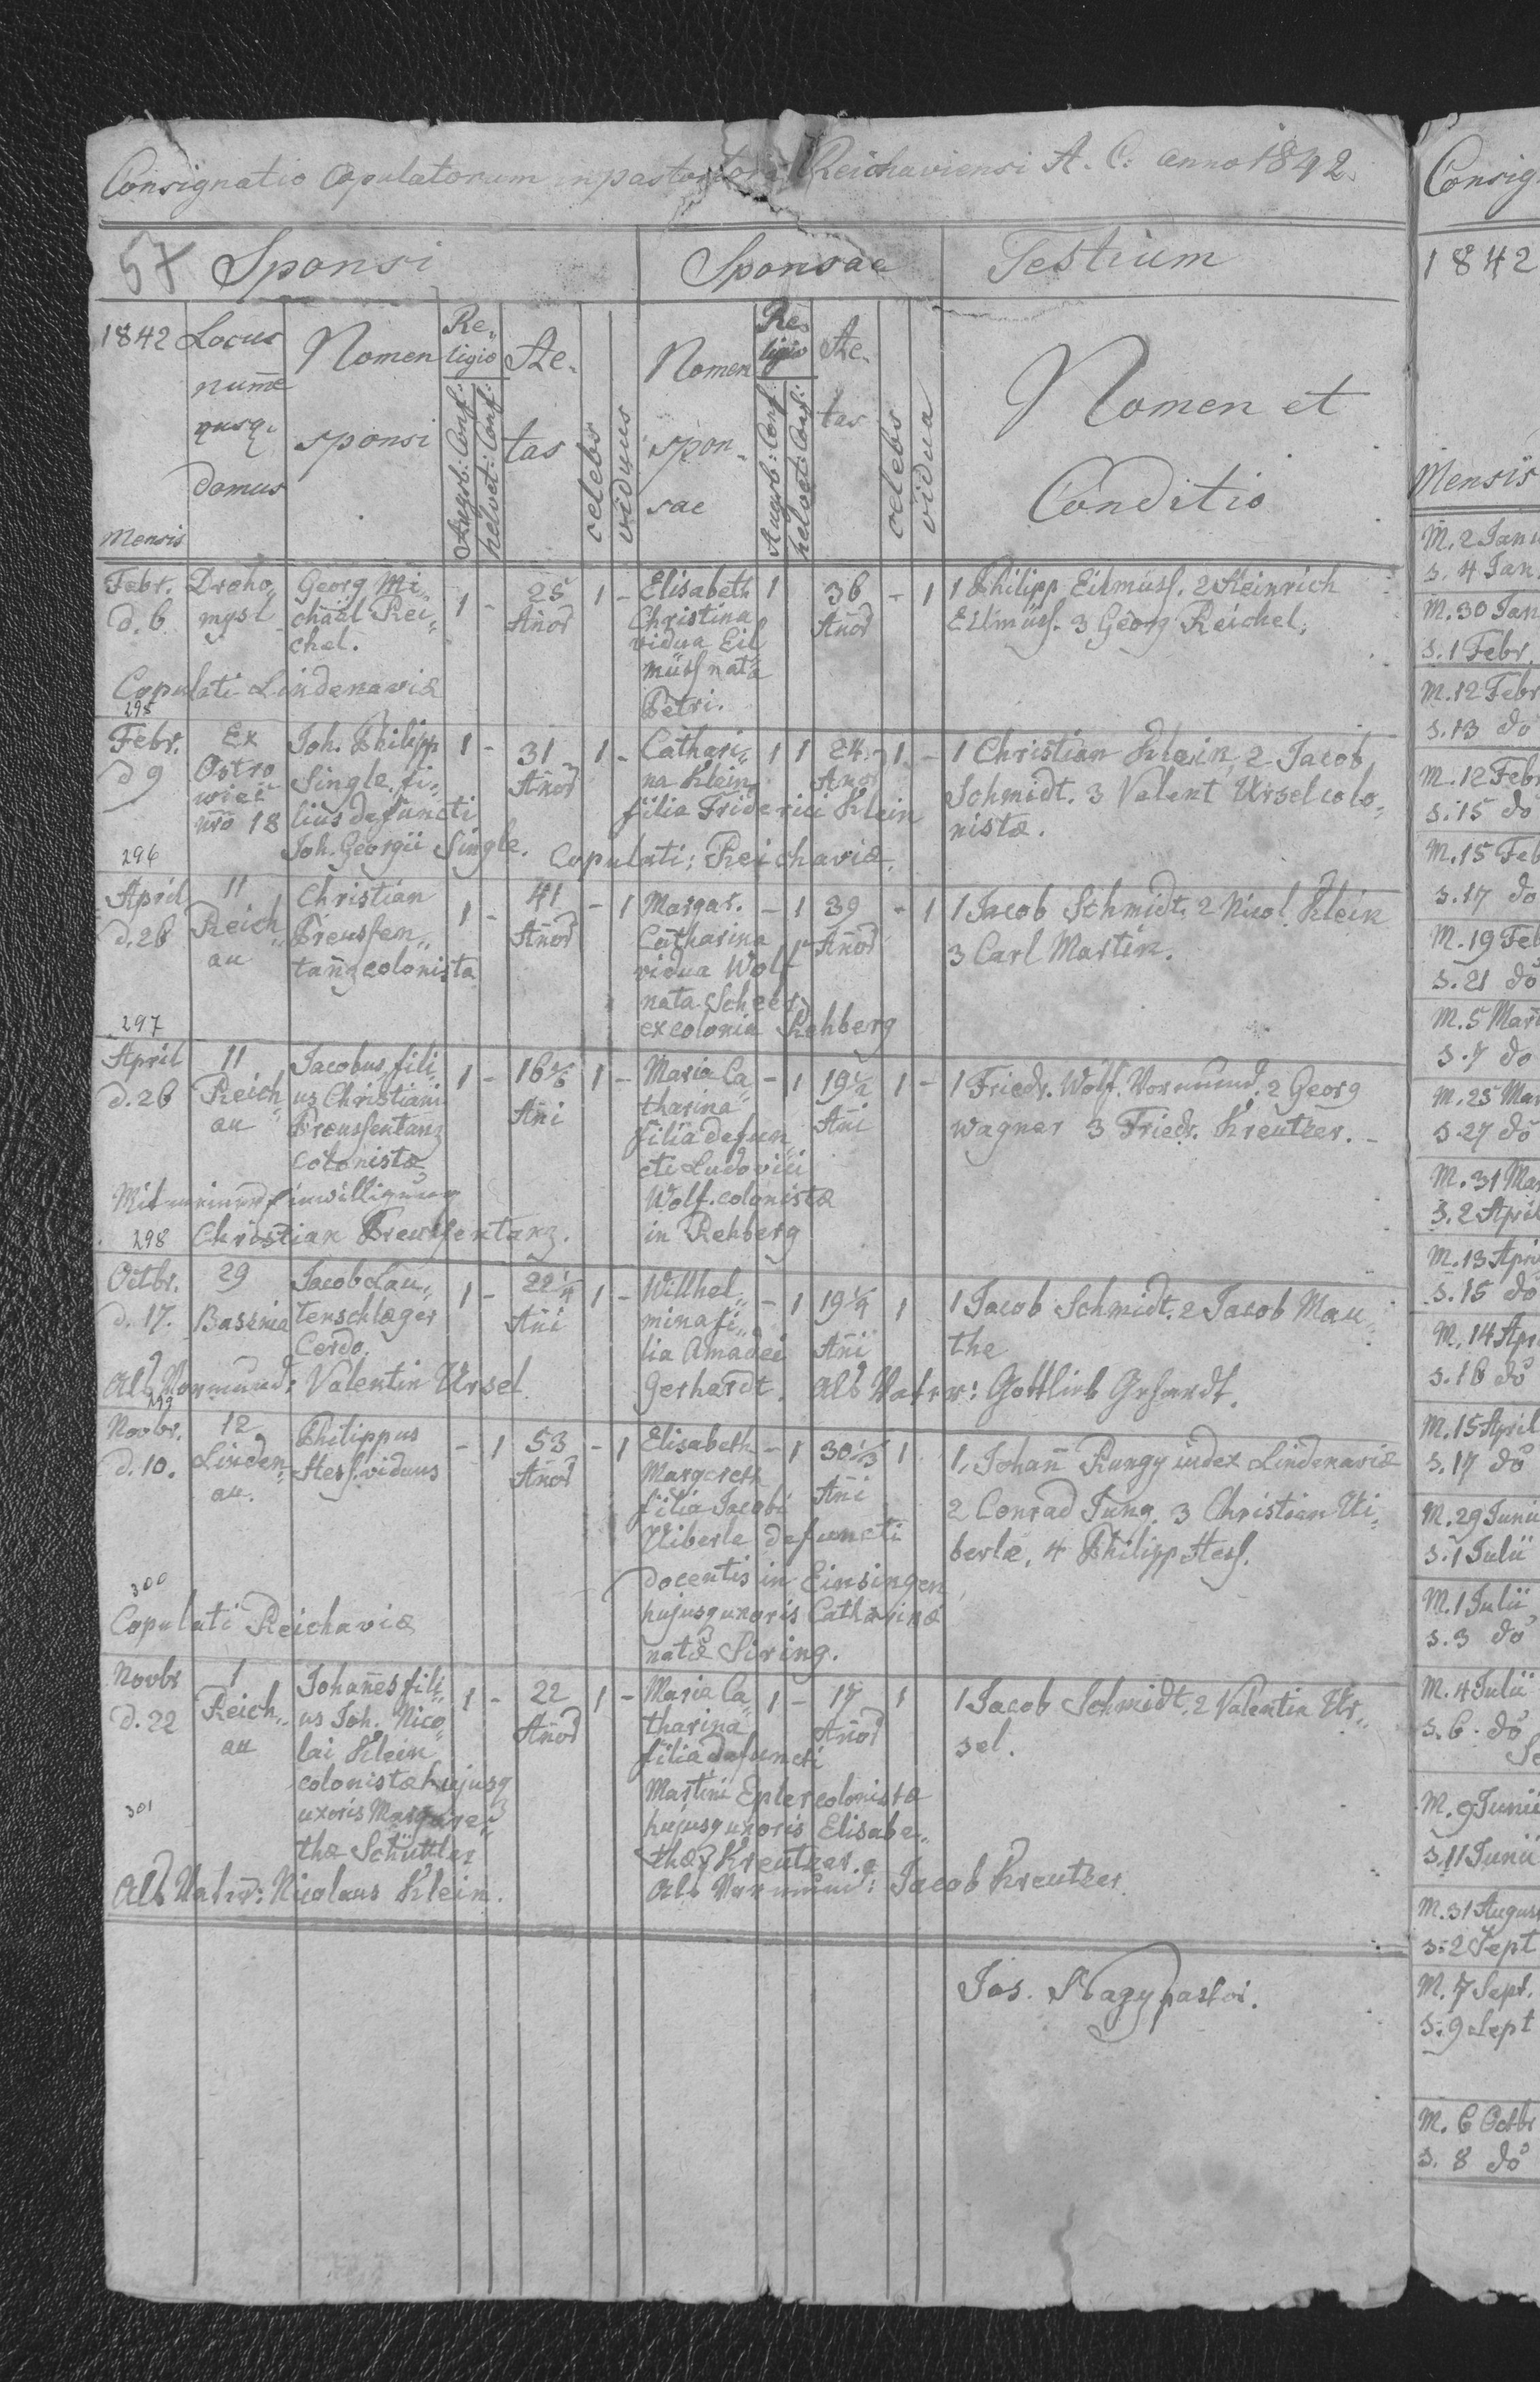 Consignatio Copulatorum in pastoratore Reichaviensi A. C. anno 1842.
57 Sponsi
Sponsae
Testium
1842 Locus nume rusq domus
Mensis
Nomen sponsi
Religio
Augsb: Conf:
helvet: Conf:
Aetas
celebs
viduus
Nomen sponsae
Religio
Augsb: Conf:
helvet: Conf:
Aetas
celebs
vidua
Nomen et
Conditio
Febr. d. 6
Droho„
mysl
Georg Mi„
chaal Rei„
chel.
1 -
25
Añor
1 -
Elisabeth
Christina
vidua Eil
müss nata
Petri.
1
36
Añor
- 1
1 Philipp Eilmüss. 2 Heinrich
Eilmüss. 3 Georg Reichel.
Copulati Lindenaviæ
295
Febr.
d 9
Ex
Ostro
wiec
nro 18
Joh. Philipp
Single, fi„
lius defuncti
Joh. Georgii Single.
1 -
31
Añor
1 -
Cathari„
na Klein
filia Friderici Klein
1 1
24
Añor
1 -
1 Christian Klein, 2 Jacob
Schmidt. 3 Valent Ursel colo„
nistæ.
Copulati: Reichaviæ.
296
April
d. 26
11
Reich„
au
Christian
Preussen„
tanz colonista
1 -
41
Añor
- 1
Margar.
Catharina
vidua Wolf
nata Scheer
ex colonia Rehberg
- 1
39
Añor
- 1
1 Jacob Schmidt. 2 Nicol Klein
3 Carl Martin.
297
April
d. 26
11
Reich„
au
Jacobus, fili„
us Christiani
Preussentanz
colonistæ
1 -
16
Añi
1 -
Maria Ca„
tharina
filia defun„
cti Ludovici
Wolf. colonistæ
in Rehberg
- 1
19½
Añi
1 -
1 Friedr. Wolf. Vormund. 2 Georg
Wagner 3 Friedr. Kreutzer. -
Mit meiner Einwilligung
298 Christian Preussentanz.
Octbr.
d. 17.
29
Bassnia
Jacob Lau„
tenschlæger
Cerdo.
1 -
22¼
Añi
1 -
Willhel„
mina fi„
lia Amadei
Gerhardt.
- 1
19¼
Añi
1
1 Jacob Schmidt. 2 Jacob Mau„
the
Als Vormund: Valentin Ursel.
Als Vater: Gottlieb Gerhardt.
299
Novbr.
d. 10.
12
Linden„
au.
Philippus
Hess. viduus
- 1
53
Añor
- 1
Elisabeth
Margareth
filia Jacobi
Uiberle defuncti
docentis in Einsingen
hujusq uxoris Catharinæ
natæ Siring.
- 1
30⅓
Añi
1
1, Johañ Rungy iudex Lindenaviæ
2 Conrad Jung. 3 Christian Ui„
berlæ, 4 Philipp Hess.
300
Copulati Reichaviæ
Novbr
d. 22
1
Reich„
au
Johañes fili„
us Joh. Nico„
lai Klein
colonistæ hujusq
uxoris Margare„
thæ Schüttler
1 -
22
Añor
1 -
Maria Ca„
tharina
filia defuncti
Martini Epler colonistæ
hujusq uxoris Elisabe„
thæ Kreutzer.
1 -
17
Añor
1
1 Jacob Schmidt. 2 Valentin Ur„
sel.
301
Als Vater: Nicolaus Klein.
Als Vormund: Jacob Kreutzer
Jos. Nagy pastor.
Consig
1842
Mensis
M. 2 Janu
S. 4 Jan
M. 30 Jan
S. 1 Febr.
M. 12 Febr
S. 13 do
M. 12 Febr
S. 15 do
M. 15 Feb
S. 17 do
M. 19 Feb
S. 21 do
M. 5 Mart
S. 7 do
M. 25 Mar
S. 27 do
M. 31 Mar
S. 2 April
M. 13 Apri
S. 15 do
M. 14 Apr
S. 16 do
M. 15 April
S. 17 do
M. 29 Junii
S. 1 Julii
M. 1 Julii
S. 3 do
M. 4 Julii
S. 6. do
M. 9 Junii
S. 11 Junii
M. 31 August
S. 2 Sept
M. 7 Sept.
S. 9 Sept
M. 6 Octbr
S. 8 do